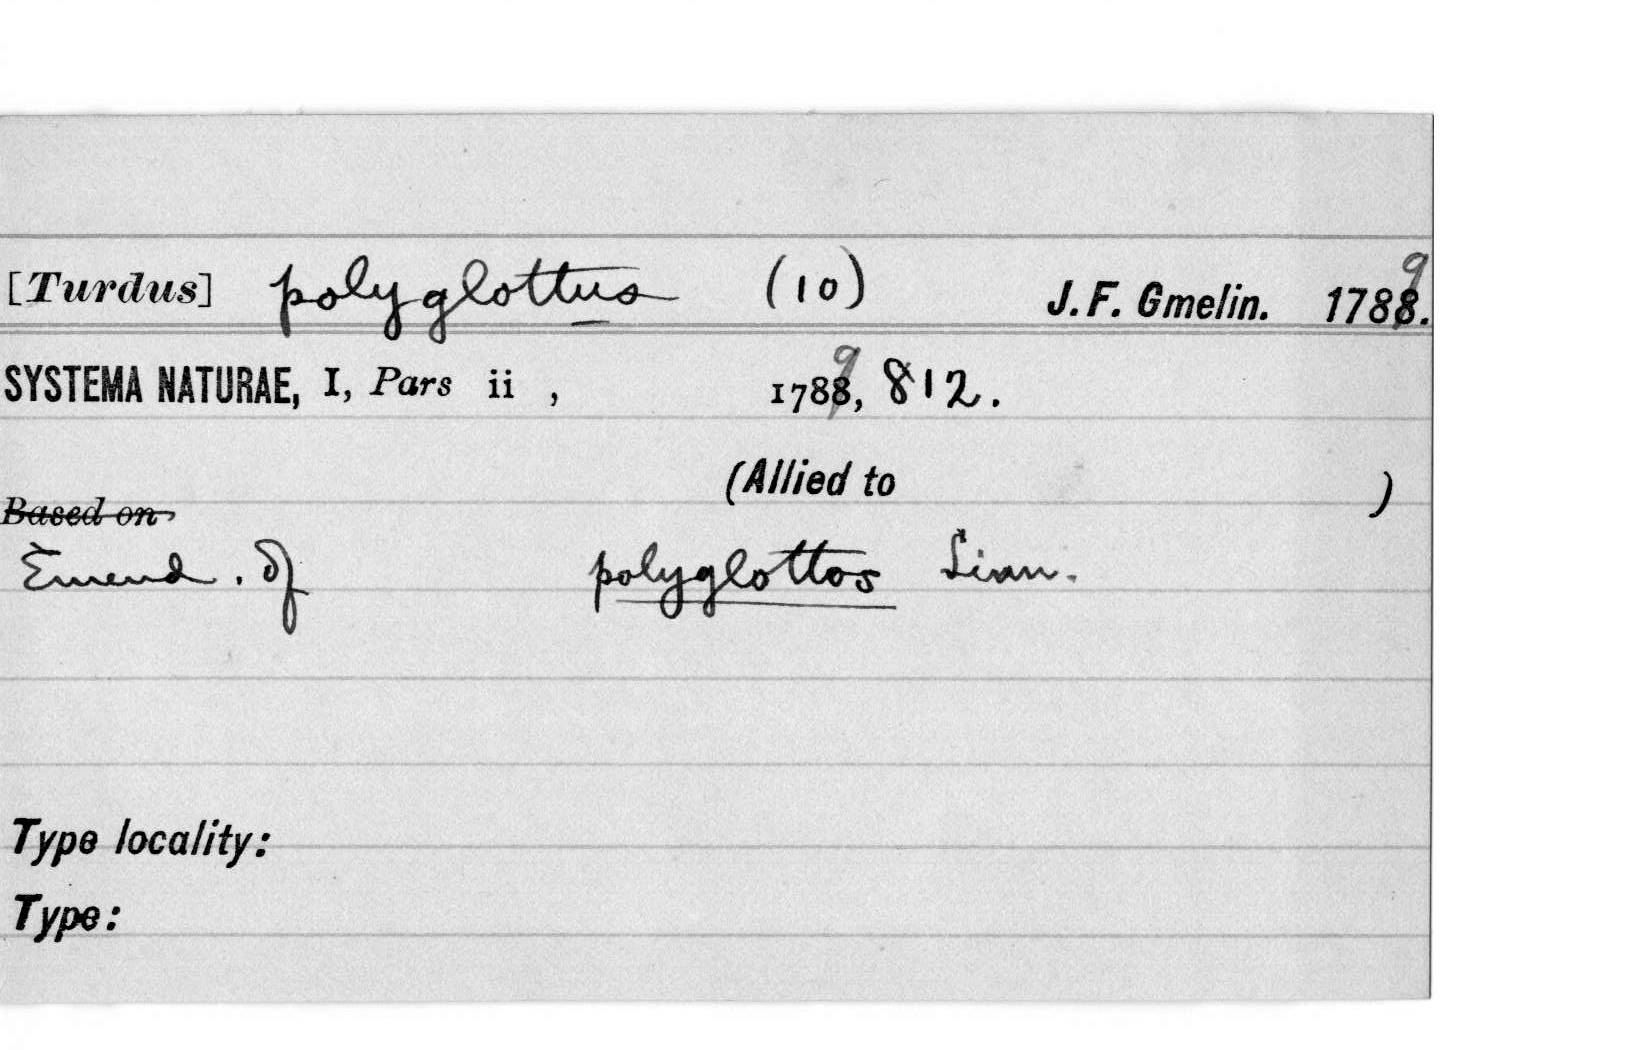 [Turdus] polyglottus (10) J. F. Gmelin. 1789.
SYSTEMA NATURAE, I, Pars ii , 1789, 812.
(Allied to )
Based on
Emend. of polyglottos Linn.
Type locality:
Type: